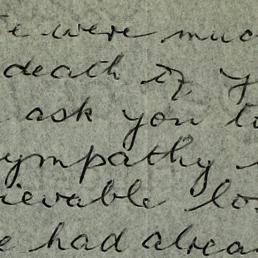 e were muc
death of y
ask you to
sympathy
ievable lo
e had alrea